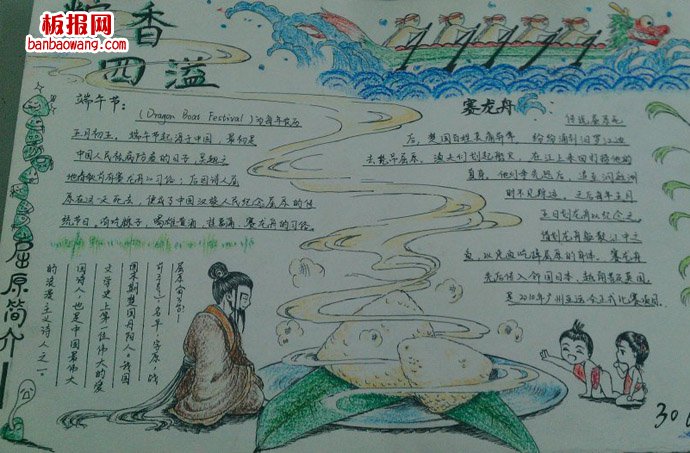 板报网
banbaowang.com
粽香
四溢
端午节：
(Dragon Boat Festival)为每年农历
五月初五。端午节起源于中国，最初是
中国人民祛病防疫的日子，吴越之
地春秋前有赛龙舟的习俗；后因诗人屈
原在这一天死去，便成了中国汉族人民纪念屈原的传
统节日，有吃粽子，喝雄黄酒，挂菖蒲，赛龙舟的习俗。
赛龙舟
传说屈原死
后，楚国百姓哀痛异常，纷纷涌到汨罗江边
去
屈原，
人们划起船只，在江上来回打捞他的
真身。他们争先恐后，追至洞庭湖
时不见踪迹，之后每年五月
五日划龙舟以纪念之。
借划龙舟驱散江中之
鱼，以免鱼吃掉屈原的身体。赛龙舟
先后传入邻国日本、越南
英国，
是2010年广州亚运会正式比赛项目。
屈原简介
屈原
国末期楚国丹阳人。我国
文学史上第一位伟大的爱
国诗人。也是中国最伟大
的浪漫主义诗人之一。
30